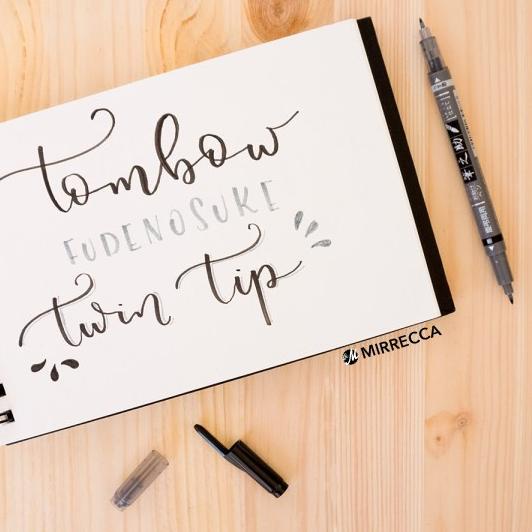 tombow
FUDENOSUKE
twin tip
MIRRECCA
筆之助